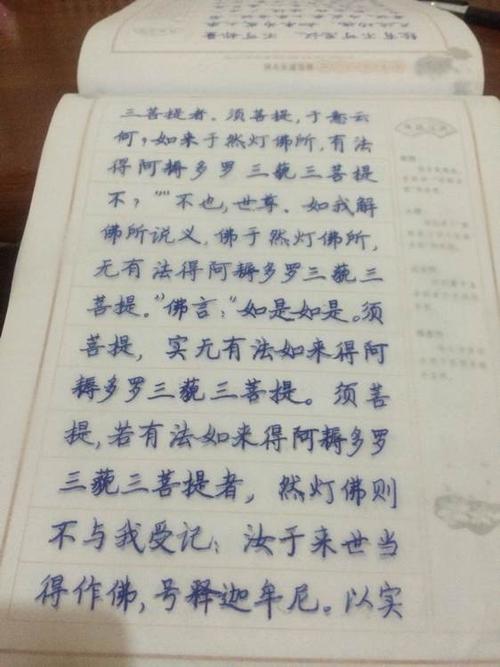 三菩提者。须菩提，于意云
何？如来于然灯佛所，有法
得阿耨多罗三藐三菩提
不？”“不也，世尊。如我解
佛所说义，佛于然灯佛所，
无有法得阿耨多罗三藐三
菩提。”佛言：“如是如是。须
菩提，实无有法如来得阿
耨多罗三藐三菩提。须菩
提，若有法如来得阿耨多罗
三藐三菩提者，然灯佛则
不与我受记：汝于来世当
得作佛，号释迦牟尼。以实